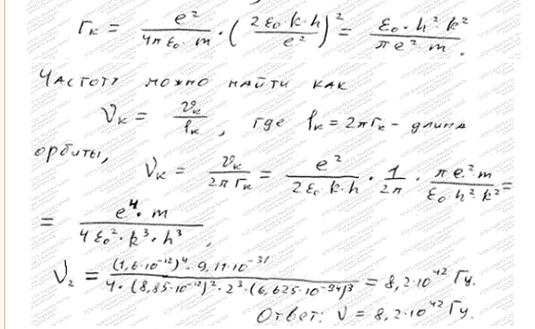 r_k = e²/(4πε₀·m) · (2ε₀·k·h/e²)² = ε₀·h²·k²/(πe²m).
Частоту можно найти как
ν_k = v_k/l_k, где l_k = 2πr_k - длина
орбиты, ν_k = v_k/(2πr_k) = e²/(2ε₀·k·h) · 1/(2π) · πe²m/(ε₀h²k²) =
= e⁴·m/(4ε₀²·k³·h³),
ν₂ = (1,6·10⁻¹²)⁴·9,11·10⁻³¹/(4·(8,85·10⁻¹²)²·2³·(6,625·10⁻³⁴)³) = 8,2·10⁴² Гц.
Ответ: ν = 8,2·10⁴² Гц.